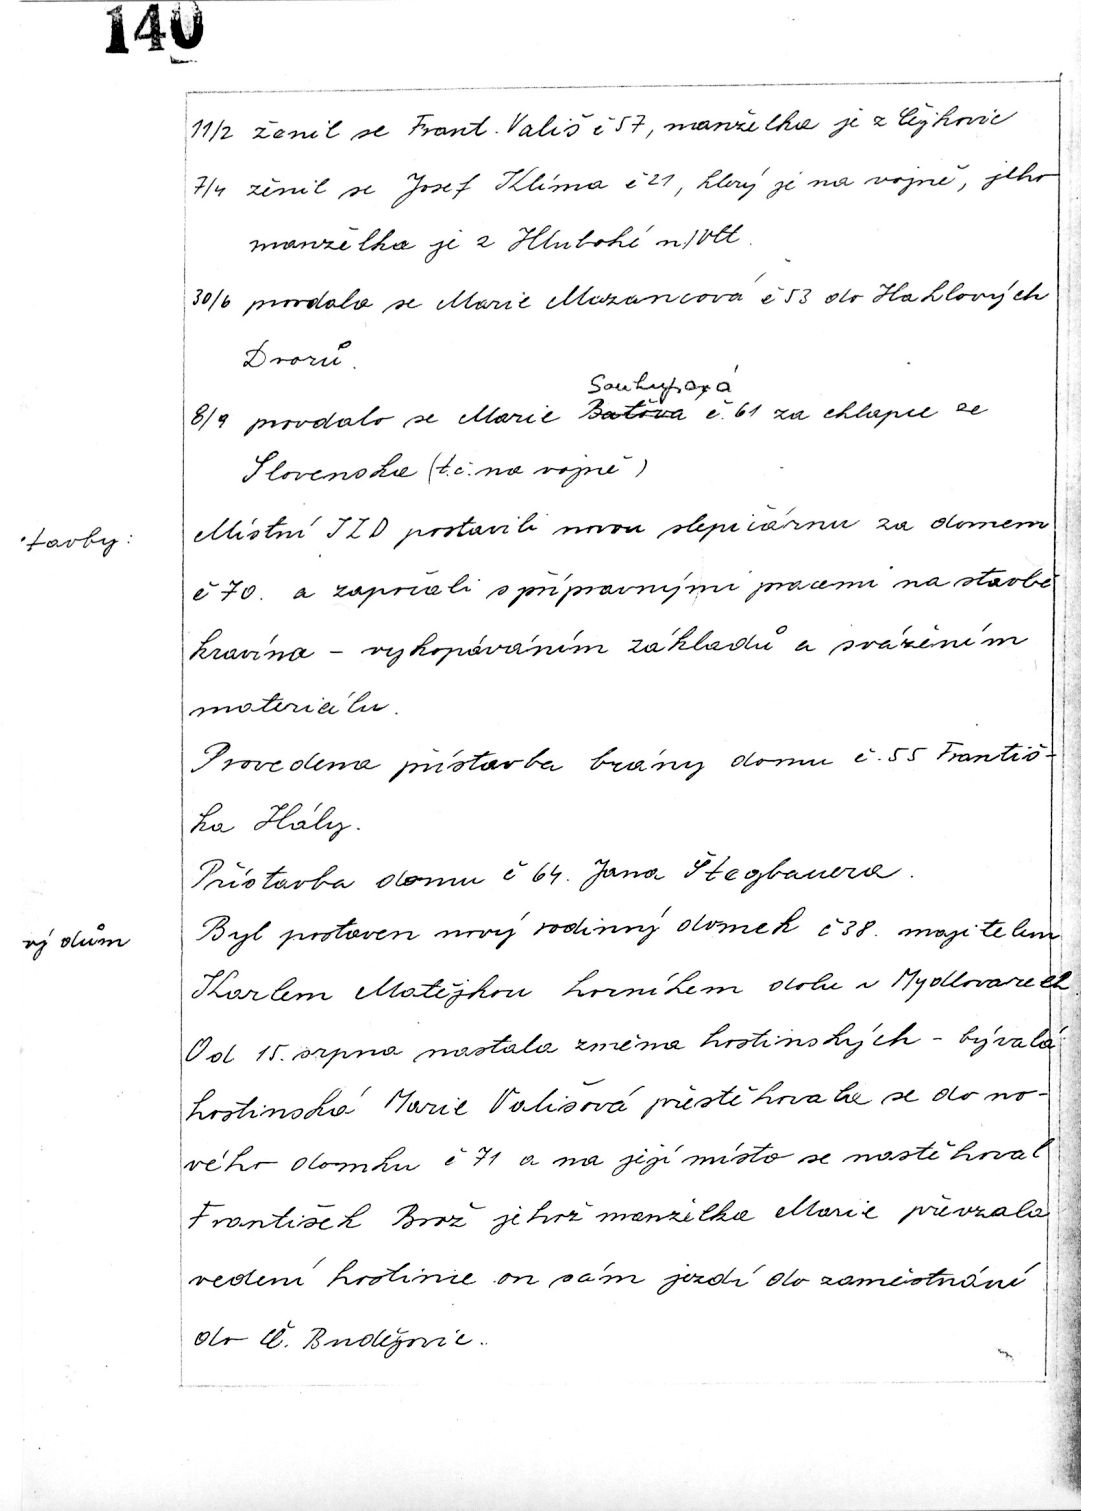 140
11/2 ženil se Frant. Vališ č 57, manželka je z Čejkovic
7/4 ženil se Josef Klíma č 21, který je na vojně, jeho
manželka je z Hluboké n/Vlt.
30/6 provdala se Marie Mazancová č 53 do Haklových
Dvorů.
Soukupová
8/9 provdala se Marie Batova č. 61 za chlapce ze
Slovenska (t.č. na vojně)
tavby: Místní JZD postavili novou slepičárnu za domem
č 70. a započali s přípravnými pracemi na stavbě
kravína – vykopáváním základů a svážením
materiálu.
Provedena přístavba brány domu č. 55 Františ-
ka Hály.
Přístavba domu č 64. Jana Štegbauera.
vý dům Byl postaven nový rodinný domek č 38. majitelem
Karlem Matějkou horníkem dolu v Mydlovarech
Od 15. srpna nastala změna hostinských – bývalá
hostinská Marie Vališová přestěhovala se do no-
vého domku č 71 a na její místo se nastěhoval
František Brož jehož manželka Marie převzala
vedení hostince on sám jezdí do zaměstnání
do Č. Budějovic.